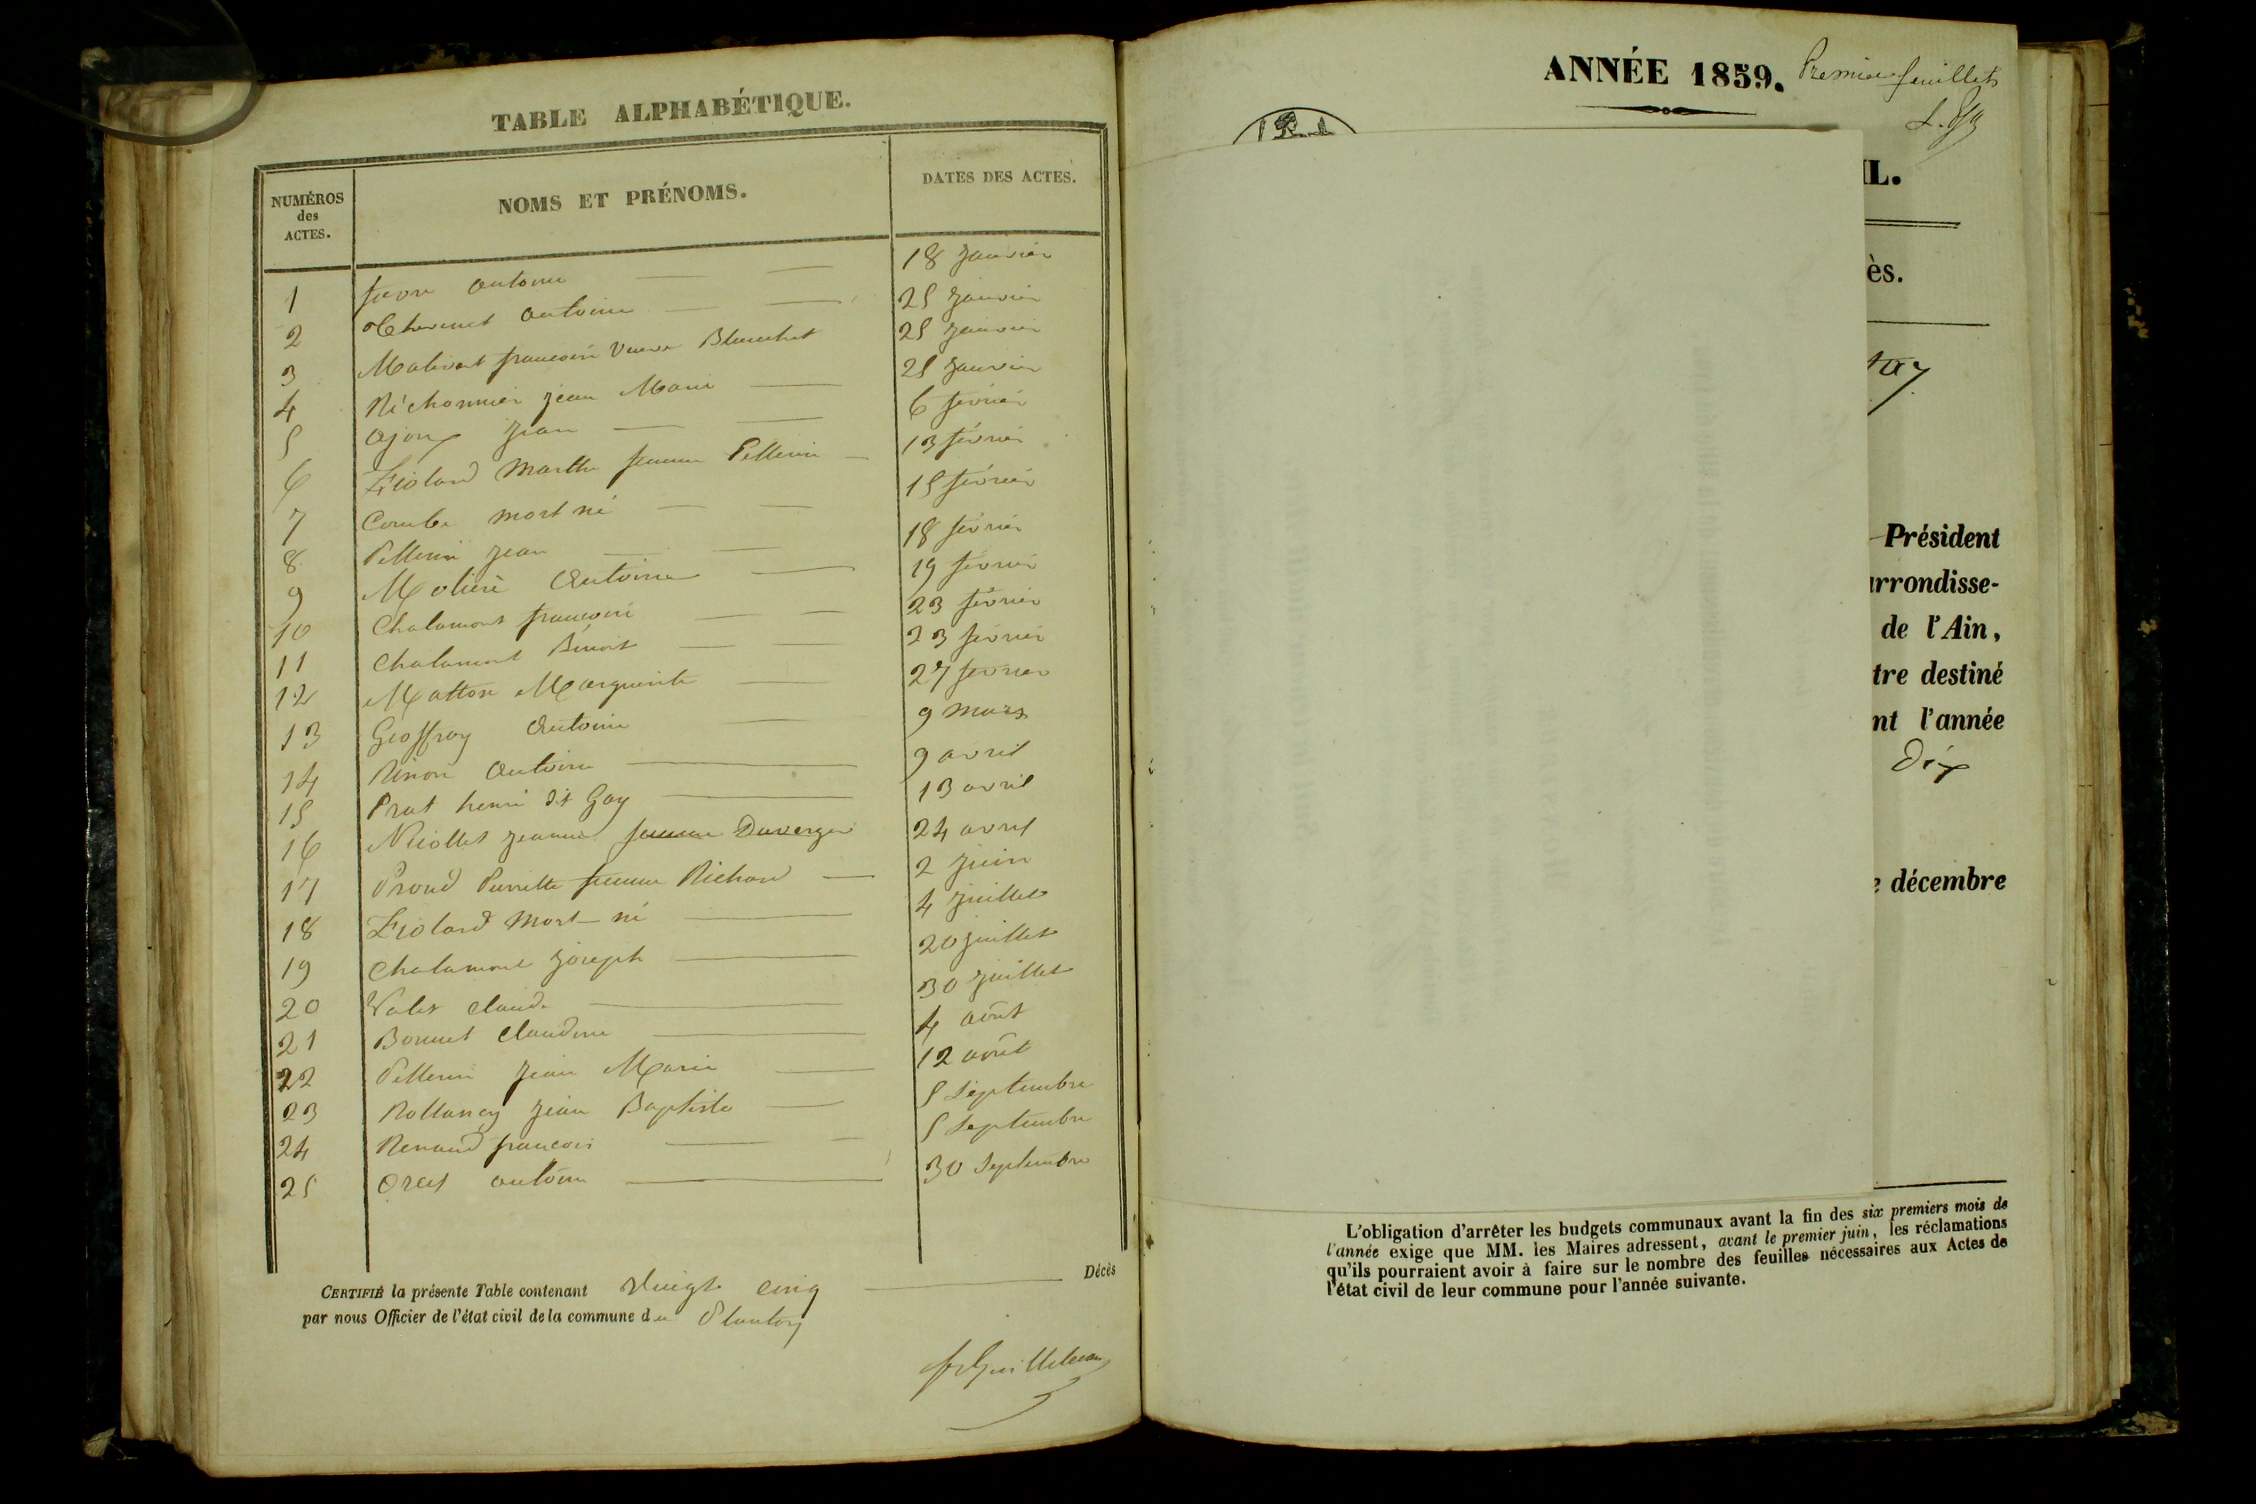 TABLE ALPHABÉTIQUE.
NUMÉROS des ACTES.
NOMS ET PRÉNOMS.
DATES DES ACTES.
1 favre antoine 18 Janvier
2 Thevenet antoine 25 Janvier
3 françoise Veuve Blanchet 25 Janvier
4 Réchonnier jean Marie 25 Janvier
5 ajoux Jean 6 février
6 Fiolard Marthe femme Pellerin 13 février
7 Combe mort né 15 février
8 Pellerin Jean 18 février
9 Molière Antoine 19 février
10 Chalamont françois 23 février
11 Chalamont Benoit 23 février
12 Matton Marguerite 27 février
13 Geoffray Antoine 9 Mars
14 Antoine 9 avril
15 Prat henri dit Gay 13 avril
16 Nicollet Jeanne femme Duverger 24 avril
17 Proud Pierrette femme Richard 2 Juin
18 Fiolard Mort-né 4 Juillet
19 Chalamont Joseph 20 Juillet
20 Claude 30 Juillet
21 Bonnet Claudine 4 août
22 Pellerin Jean Marie 12 août
23 Jean Baptiste 5 Septembre
24 Renaud françois 5 Septembre
25 antoine 30 Septembre
CERTIFIÉ la présente Table contenant Vingt cinq Décès
par nous Officier de l'état civil de la commune du Plantay
ANNÉE 1859. Premier feuillet
IL.
ès.
Président
arrondisse-
de l'Ain,
tre destiné
nt l'année
Dix
e décembre
L'obligation d'arrêter les budgets communaux avant la fin des six premiers mois de
l'année exige que MM. les Maires adressent, avant le premier juin, les réclamations
qu'ils pourraient avoir à faire sur le nombre des feuilles nécessaires aux Actes de
l'état civil de leur commune pour l'année suivante.